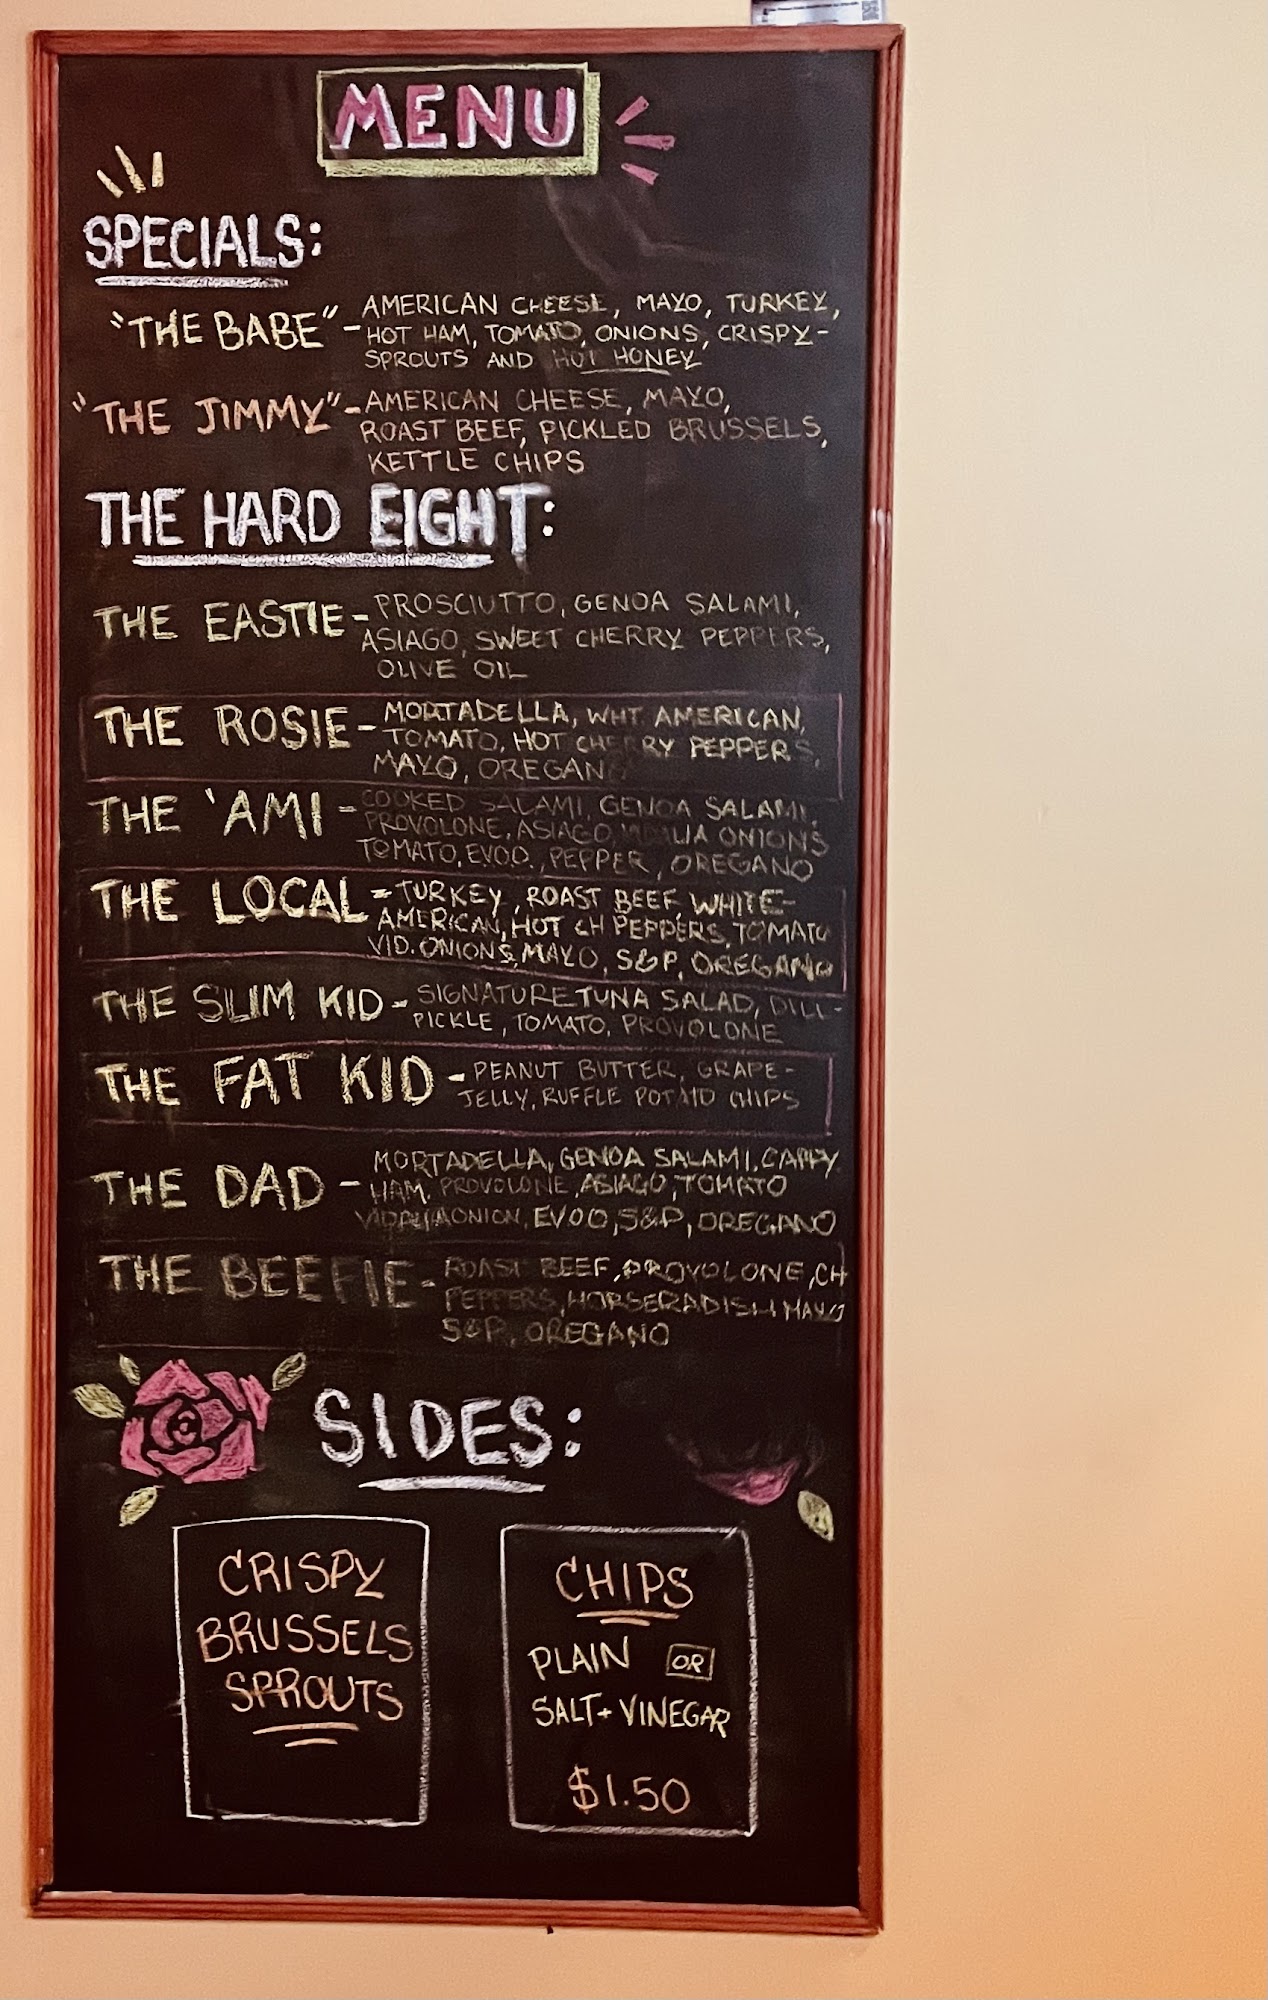 MENU
SPECIALS:
"THE BABE" - AMERICAN CHEESE, MAYO, TURKEY,
HOT HAM, TOMATO, ONIONS, CRISPY-
SPROUTS AND HOT HONEY
"THE JIMMY" - AMERICAN CHEESE, MAYO,
ROAST BEEF, PICKLED BRUSSELS,
KETTLE CHIPS
THE HARD EIGHT:
THE EASTIE - PROSCIUTTO, GENOA SALAMI,
ASIAGO, SWEET CHERRY PEPPERS,
OLIVE OIL
THE ROSIE - MORTADELLA, WHT AMERICAN,
TOMATO, HOT CHERRY PEPPERS,
MAYO, OREGANO
THE 'AMI - COOKED SALAMI, GENOA SALAMI,
PROVOLONE, ASIAGO, VIDALIA ONIONS
TOMATO, EVOO, PEPPER, OREGANO
THE LOCAL = TURKEY, ROAST BEEF, WHITE-
AMERICAN, HOT CH PEPPERS, TOMATO
VID. ONIONS, MAYO, S&P, OREGANO
THE SLIM KID - SIGNATURE TUNA SALAD, DILL-
PICKLE, TOMATO, PROVOLONE
THE FAT KID - PEANUT BUTTER, GRAPE-
JELLY, RUFFLE POTATO CHIPS
THE DAD - MORTADELLA, GENOA SALAMI, CAPPY
HAM, PROVOLONE, ASIAGO, TOMATO
VIDALIA ONION, EVOO, S&P, OREGANO
THE BEEFIE - ROAST BEEF, PROVOLONE, CH
PEPPERS, HORSERADISH MAYO
S&P, OREGANO
SIDES:
CRISPY
BRUSSELS
SPROUTS
CHIPS
PLAIN OR
SALT + VINEGAR
$1.50